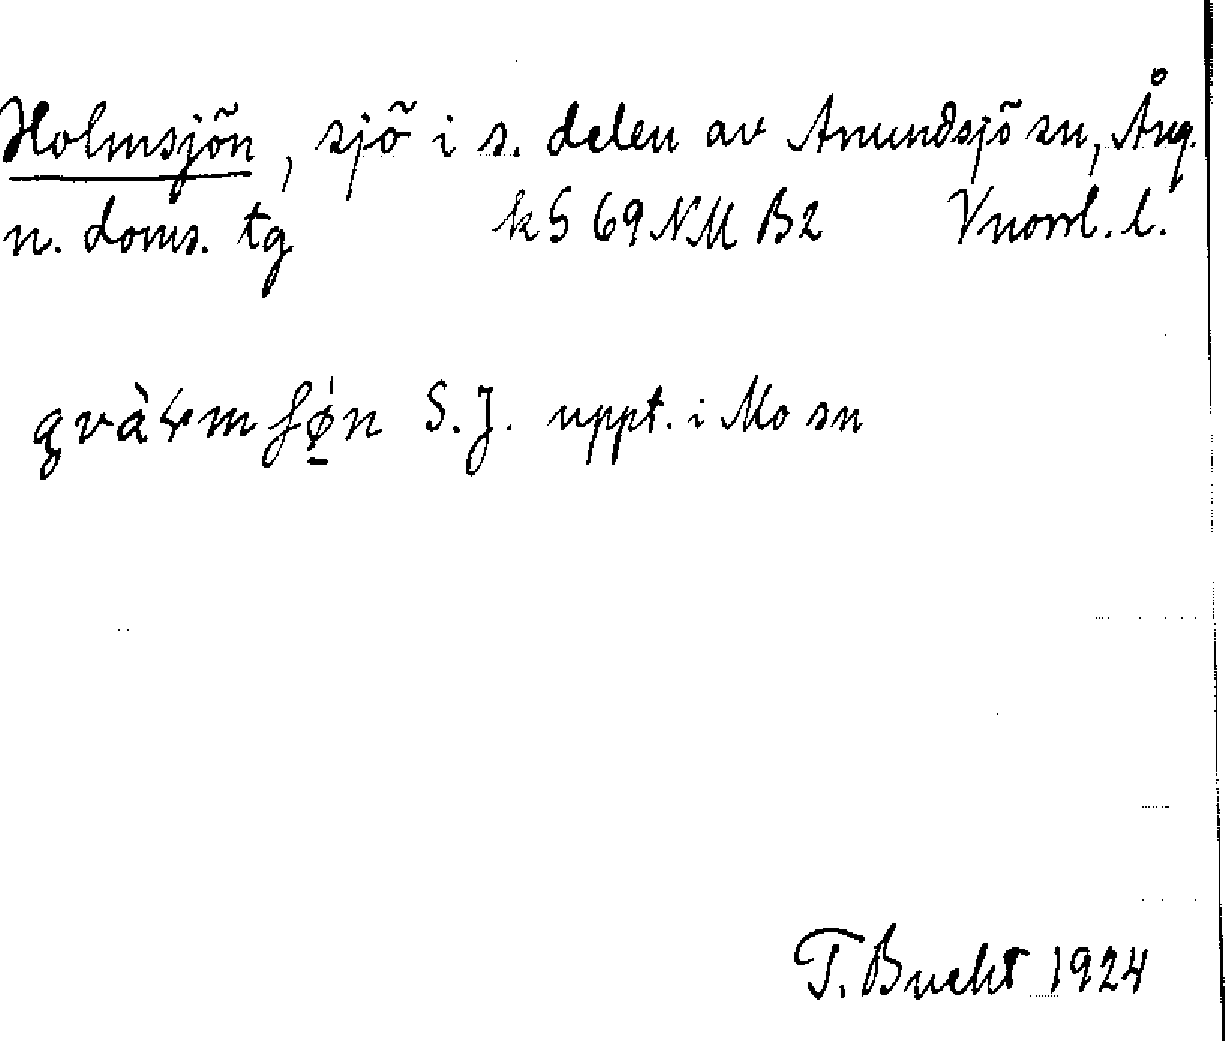 Holmsjön, sjö i s. delen av Anundsjö sn, Ång.
n. doms. tg kS 69 NM B2 Vnorrl. l.
S. J. uppt. i Mo sn
T. Bucht 1924